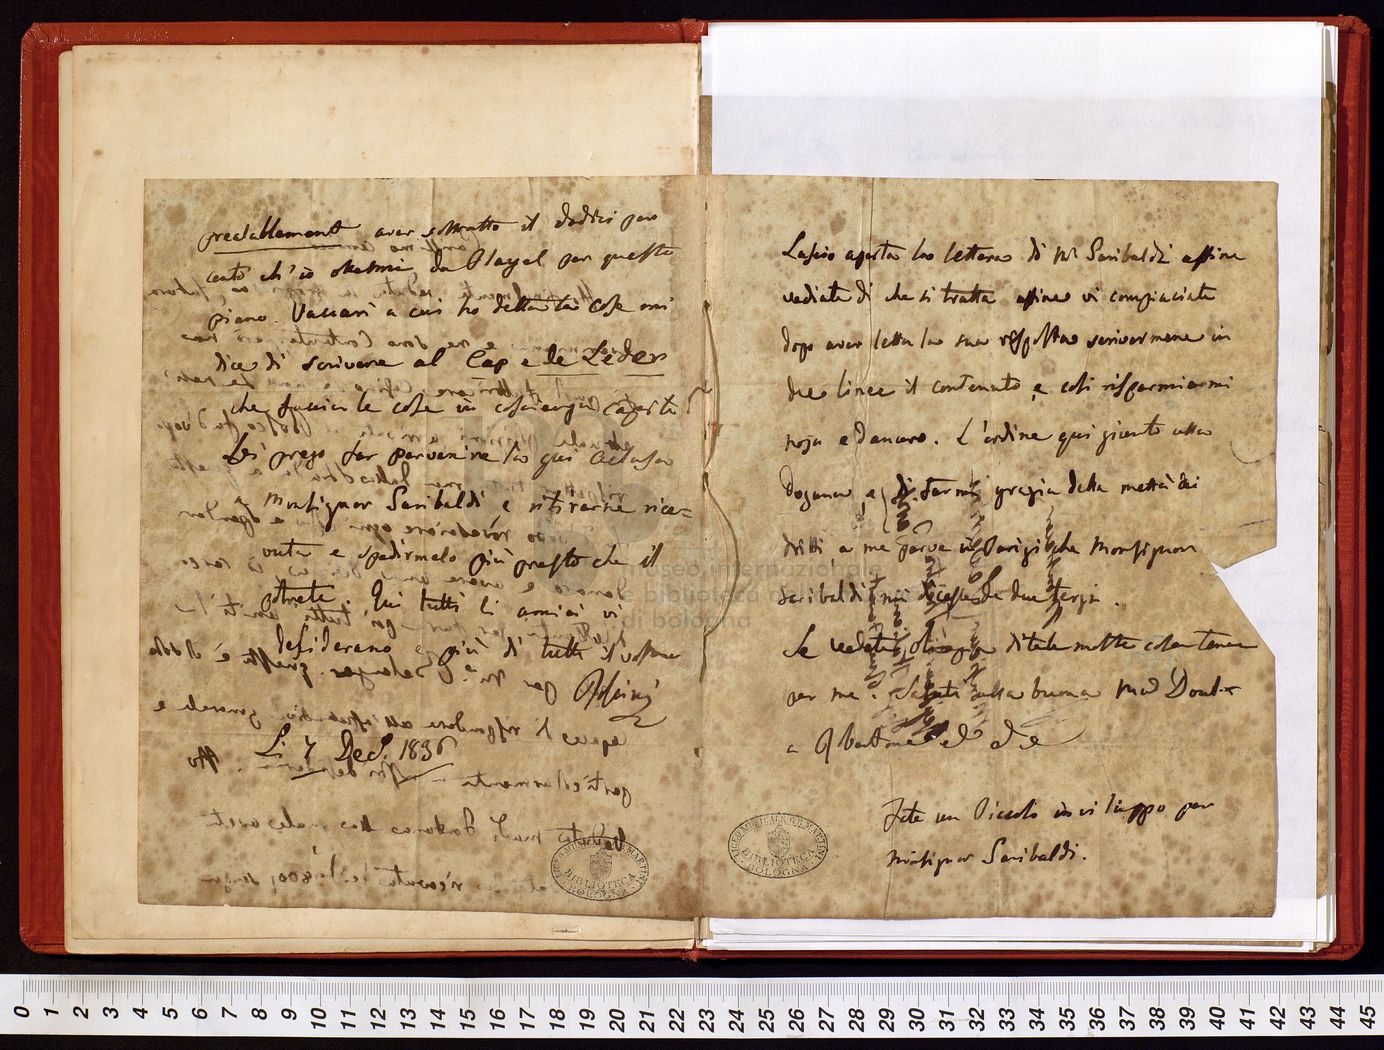 prealablement aver sottratto il dodici per
cento ch'io ottenni da Playel per questo
piano. Vaccari a cui ho detta la cosa mi
dice di scrivere al Cap e le Leder
che faccia le cose in coscienza
Vi prego far pervenire la qui acclusa
a Monsignor Garibaldi e ritirarne rice=
vuta e spedirmela più presto che il
potrete. Qui tutti li amici vi
desiderano e più di tutti il vostro
Rossini
Li 7 Dec. 1836
Lascio aperta la lettera di Mr Garibaldi affine
vediate di che si tratta affine vi compiaciate
dopo aver letta la sua risposta scrivermene in
due linee il contenuto e così risparmiarmi
noja e danaro. L'ordine qui giunto alla
Dogana e di farmi grazia della mettà dei
dritti a me parve in Parigi che Monsignor
Garibaldi mi dicesse de due terzi.
Se vedete ditele molte cose tenere
per me. Salutate alla buona
Fate un Piccolo inviluppo per
Monsignor Garibaldi.
LICEO MUSICALE G.B. MARTINI
BIBLIOTECA
BOLOGNA
LICEO MUSICALE G.B. MARTINI
BIBLIOTECA
BOLOGNA
museo internazionale
e biblioteca della musica
di bologna
0 1 2 3 4 5 6 7 8 9 10 11 12 13 14 15 16 17 18 19 20 21 22 23 24 25 26 27 28 29 30 31 32 33 34 35 36 37 38 39 40 41 42 43 44 45